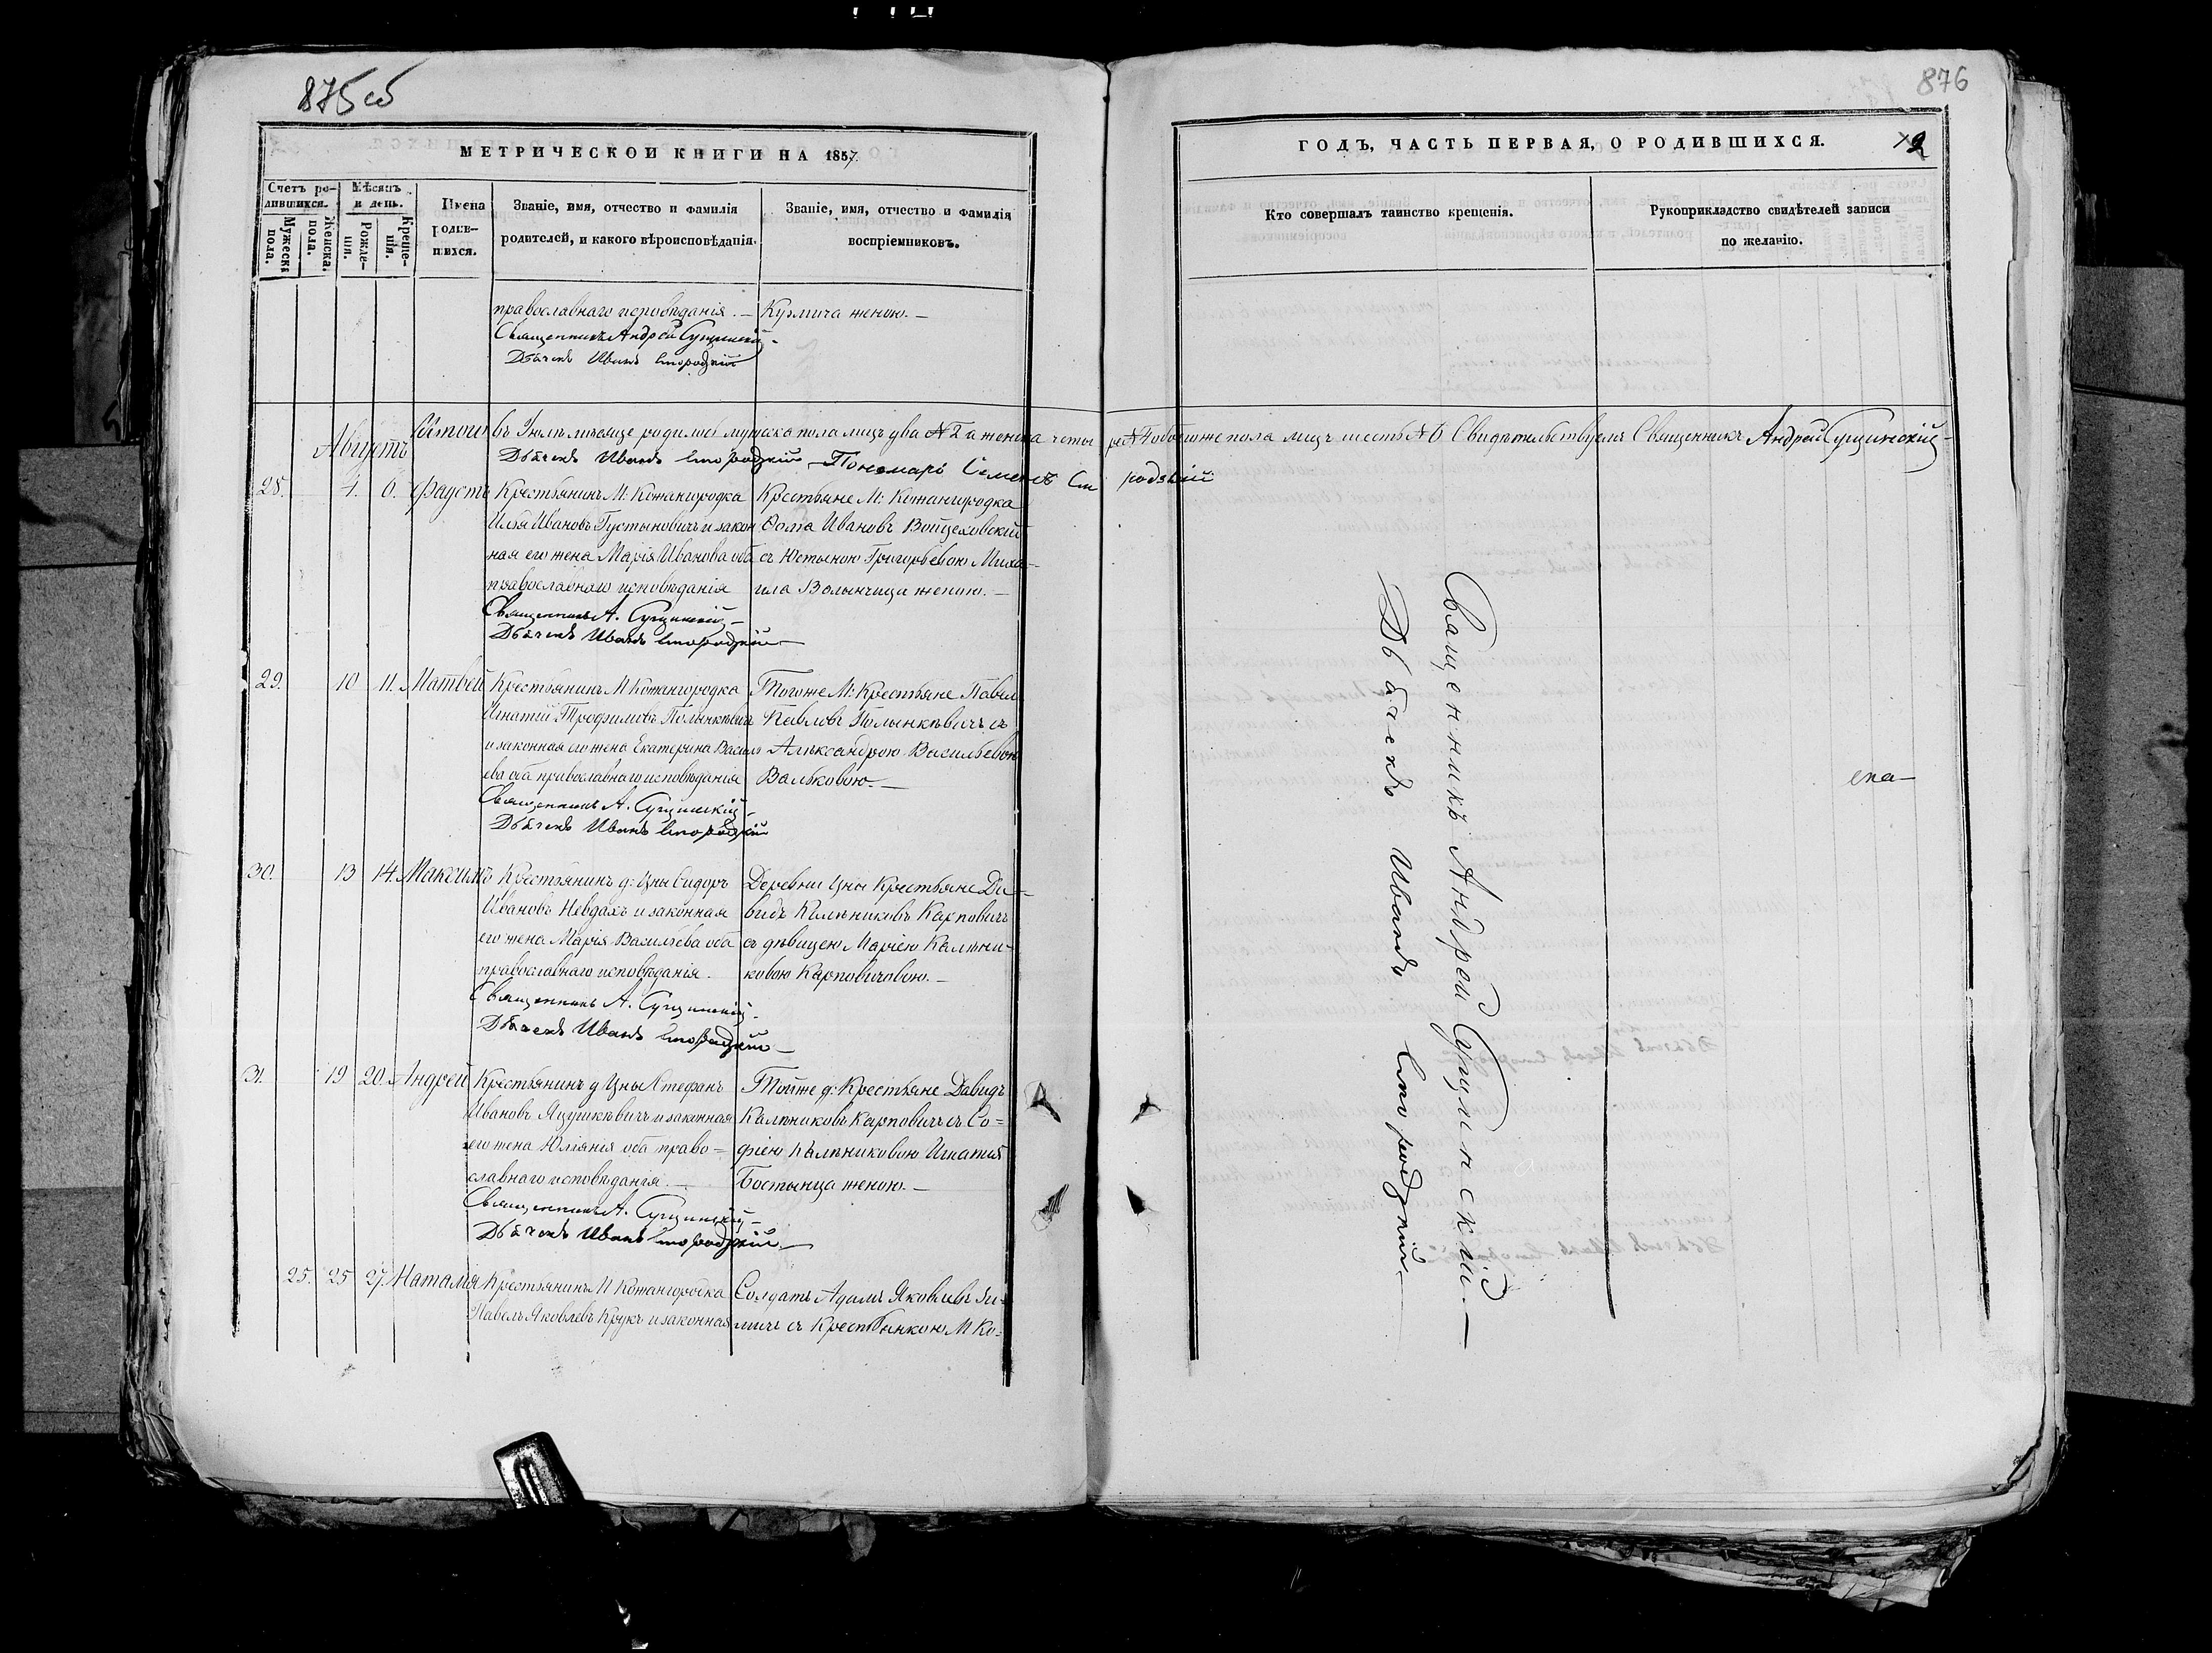 875 об
876
МЕТРИЧЕСКОЙ КНИГИ НА 1857.
ГОДЪ, ЧАСТЬ ПЕРВАЯ, О РОДИВШИХСЯ.
Счетъ ро-
дившихся.
Мужеска
пола.
Женска.
пола.
Мѣсяцъ
и день.
Рожде-
нія.
Креще-
нія.
Имена
родив-
шихся.
Званіе, имя, отчество и фамилія
родителей, и какого вѣроисповѣданія.
Званіе, имя, отчество и фамилія
воспріемниковъ.
Кто совершалъ таинство крещенія.
Рукоприкладство свидѣтелей записи
по желанію.
православнаго исповѣданія. — Кузмича женою. —
Священникъ Андрей Сущинскій
Дьячекъ Иванъ
Итого въ Іюлѣ мѣсяце родилось мужеска пола лицъ два № 2 а женска четыре № 4 обоего же пола лицъ шесть № 6 Свидѣтельствуемъ Священникъ Андрей Сущинскій
Августъ
Дьячекъ Иванъ Пономарь Семенъ
28. 4. 6. Фаустъ Крестьянинъ М: Кожангородка Крестьяне М: Кожангородка
Илья Ивановъ Густыновичъ и закон Фома Ивановъ Войцеховскій
ная его жена Марія Иванова оба съ Юстыною Григорьевою Миха-
православнаго исповѣданія ила Волынчица женою. —
Священникъ А. Сущинскій
Дьячекъ Иванъ
29. 10 11. Матвей Крестьянинъ М Кожангородка Тогоже М: Крестьяне Павел
Игнатій Трофимовъ Полынкѣвичъ Павловъ Полынкѣвичъ съ
и законная его жена Екатерина Василь Алѣксандрою Васильевою
ева оба православнаго исповѣданія Вальковою. —
Священникъ А. Сущинскій
Дьячекъ Иванъ
30. 13 14. Максимъ Крестьянинъ д: Цны Сидоръ Деревни Цны Крестьяне Да-
Ивановъ Невдахъ и законная видъ Калѣниковъ Карповичъ
его жена Марія Васильева оба съ дѣвицею Маріею Калѣни-
православнаго исповѣданія. ковою Карповичовою. —
Священникъ А. Сущинскій
Дьячекъ Иванъ
31. 19 20. Андрей Крестьянинъ д Цны Стефанъ Тойже д: Крестьяне Давидъ
Ивановъ Яцушкѣвичъ и законная Калѣниковъ Карповичъ съ Со=
его жена Юліянія оба право= фіею Калѣниковою Игнатія
славнаго исповѣданія. — Бостынца женою. —
Священникъ А. Сущинскій
Дьячекъ Иванъ
25. 25 27. Наталія Крестьянинъ М Кожангородка Солдатъ Адамъ Яковлевъ
Павелъ Яковлевъ Крукъ и законная съ Крестьянкою М Ко=
Священникъ Андрей Сущинскій —
Дьячекъ Иванъ